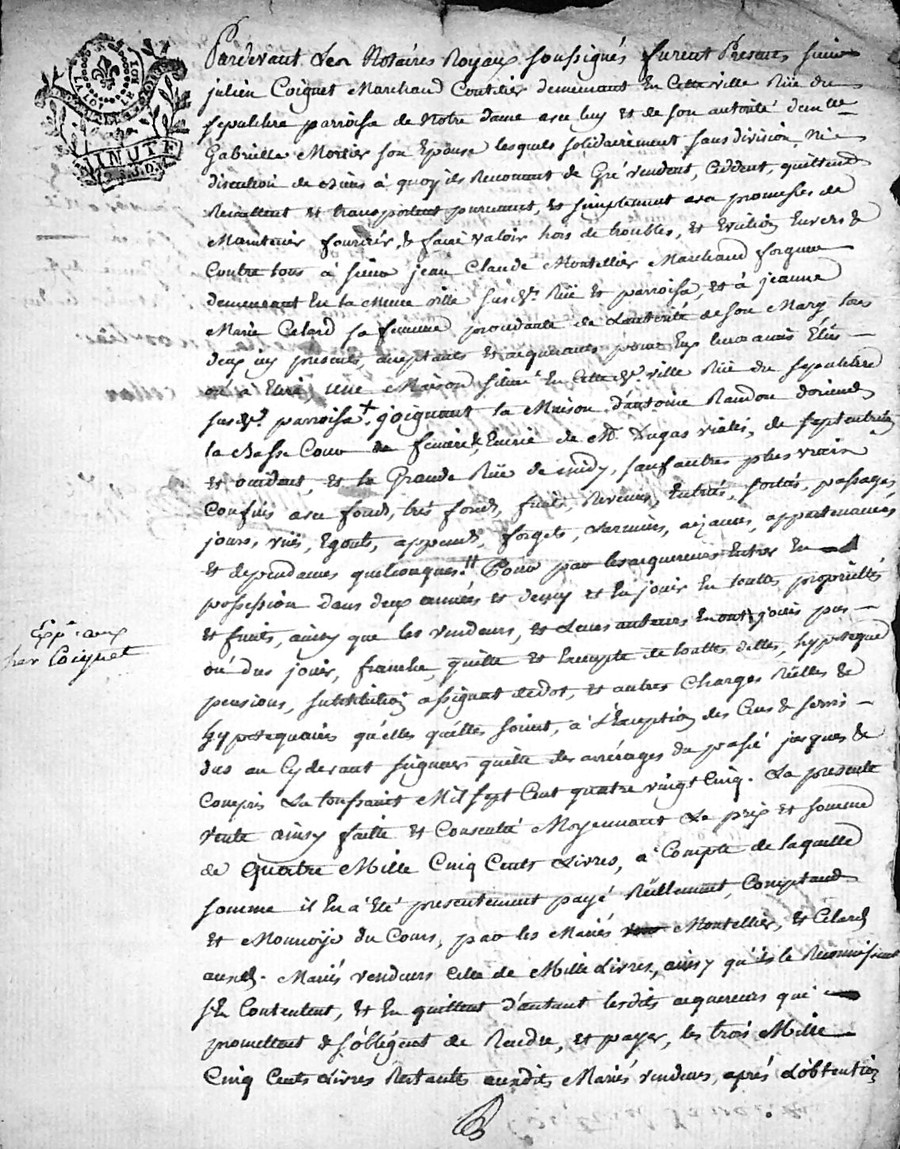 MINUTE
Pardevant Les Notaires Royaux soussignés furent Presens sieur
julien Coignet Marchand Coutelier demeurant En Cette ville Rüe du
sepulchre parroisse de Notre dame avec luy et de son autorité demlle
Gabrielle Mortier son Epouse lesquels solidairement sans division Ni
discution de biens à quoy ils Renoncent de Gré vendent, Ceddent, quittent
Remettent et transportent purement, et simplement avec promesses de
Maintenir fournir, & faire valoir hors de troubles, et Eviction Envers &
Contre tous a sieur jean Claude Montellier Marchand forgeur
demeurant En la meme ville susdte. Rüe et parroisse, et à jeanne
Marie Celard sa femme procedante de L'autorité de son Mary tous
deux icy presents, acceptants & acquerants pour Eux leurs amis Elûs
ou à Elire une Maison située En Cette dte. ville Rüe du sepulchre
susdte. parroisse + joignant la Maison d'antoine Randon d'orient
la Basse Cour & Ecurie de Mr. Dugas vialis, de septentrion
et occident, et la Grande Rüe de midy, sauf autres plus vrais
Confins avec fonds, tres fonds, fruits, Revenus, Entrées, sorties, passages,
jours, vües, Egouts, appends, forgets, varennes, aizances, appartenances,
et dependances quelconques. Pour par les acquereurs Entrer En
possession dans deux années et demy et En jouir En toutes proprietés
et fruits, ainsy que les vendeurs, et Leurs auteurs En ont jouis pu
ou dus jouir, franche, quitte et Exempte de toutes dettes, hypoteques
pensions, substitution assignat de dot, et autres Charges Rëelles &
hypotequaires qu'elles qu'elles soient, à L'Exception des Cens & servis
dus au Cydevant seigneur quitte des arrérages du passé jusques &
Compris La toussaint Mil sept Cent quatre vingt Cinq. La presente
vente ainsy faitte et Consentie Moyennant Le prix et somme
de Quatre Mille Cinq Cents Livres, à Compte de laquelle
somme il En a Eté presentement payé Rëellement Comptant
et Monnoye du Cours, par les Mariés Montellier, et Celard
auxd. Mariés vendeurs Celle de Mille Livres, ainsy qu'ils le Reconnoissent
s'En Contentent, et En quittent d'autant lesdits acquereurs qui
promettent & s'obligent de Rendre, et payer, les trois Mille
Cinq Cents Livres Restants auxdits Mariés vendeurs, aprés L'obtention
Expon. aux
her Coignet